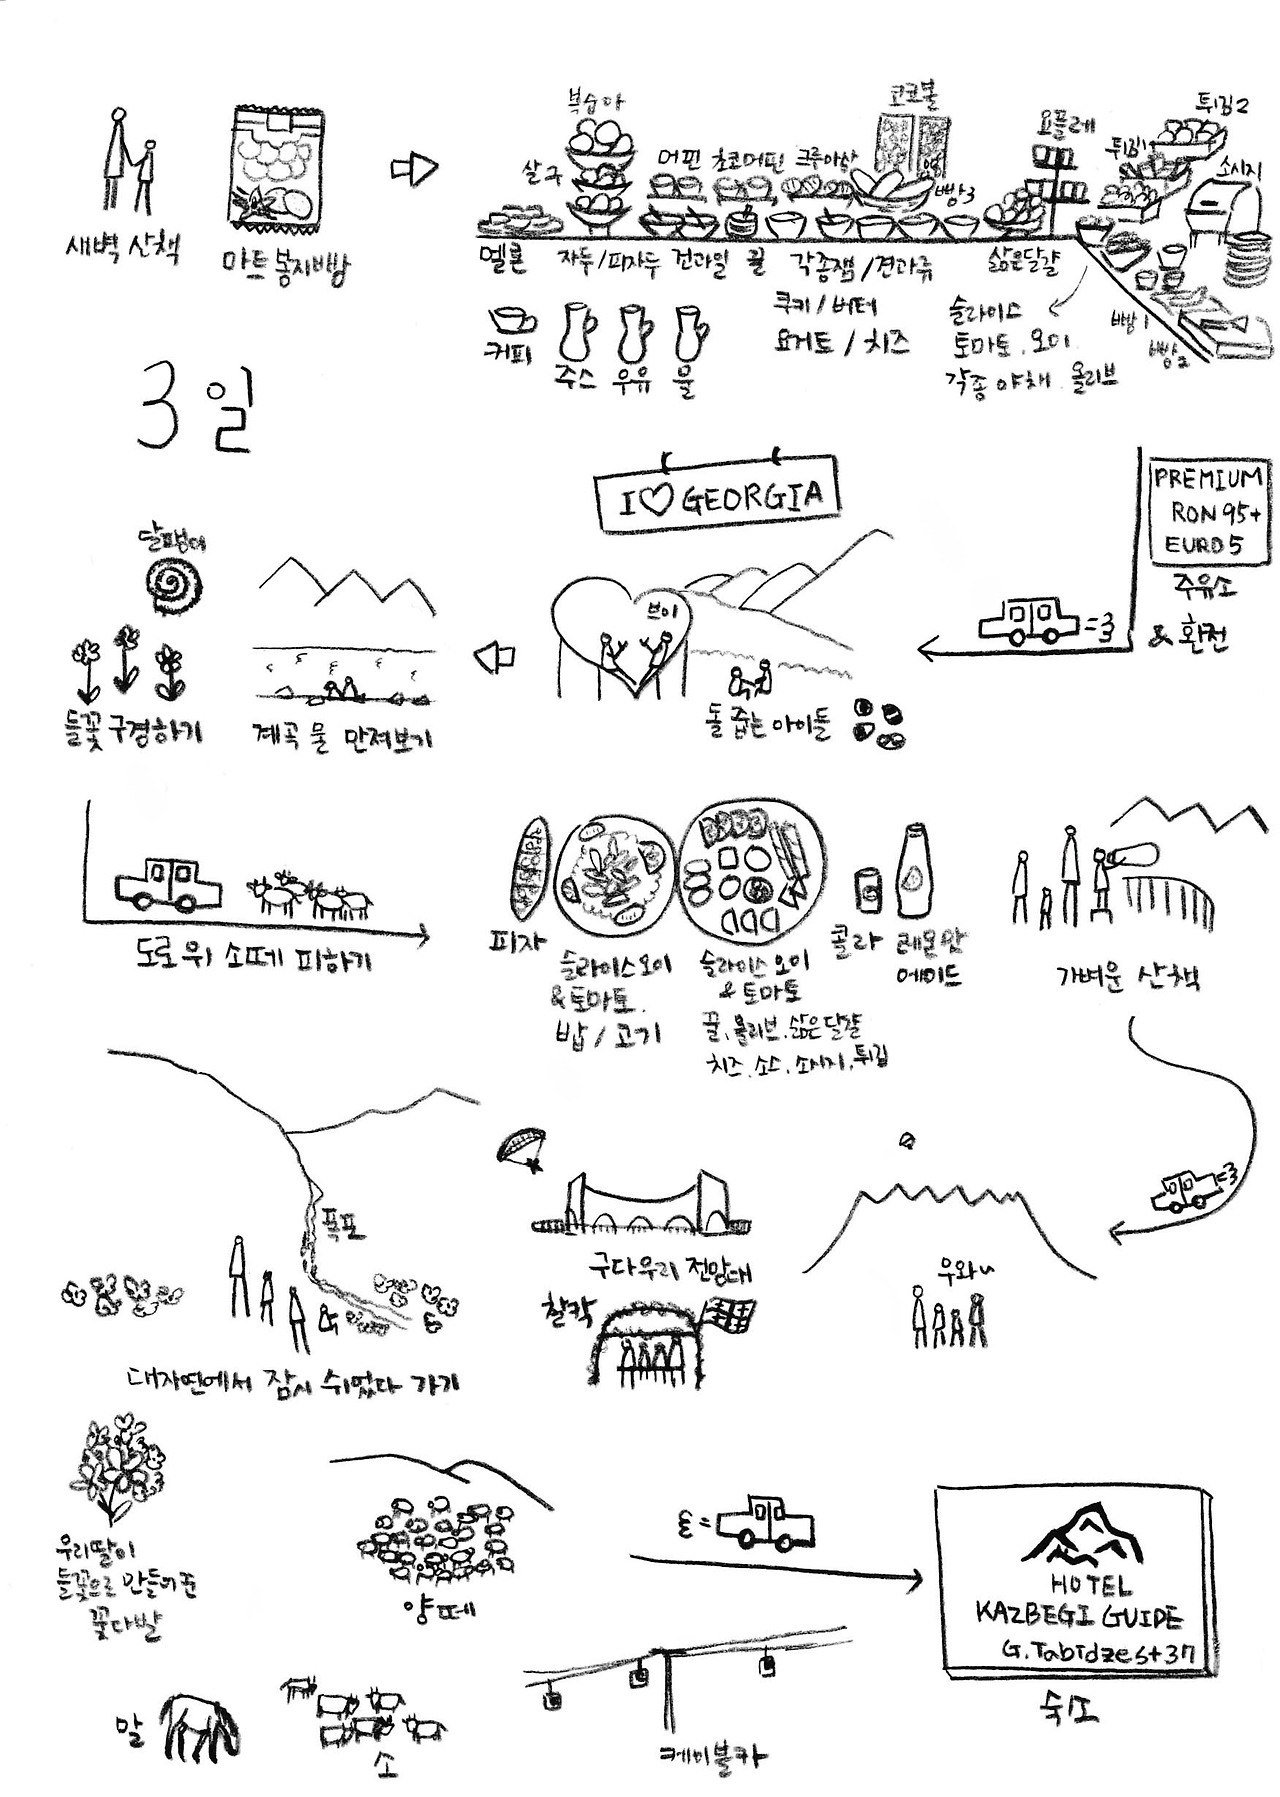 새벽 산책
마트 봉지빵
복숭아
살구
머핀
초코머핀
크루아상
코코볼
빵3
요플레
튀김1
튀김2
소시지
멜론
자두/피자두
건과일
꿀
각종잼/견과류
쿠키/버터
요거트/치즈
삶은달걀
슬라이스
토마토.오이.
각종 야채.올리브
빵1
빵2
커피
주스
우유
물
3일
I♡GEORGIA
PREMIUM
RON 95+
EURO5
주유소
& 환전
브이
돌 줍는 아이들
달팽이
들꽃 구경하기
계곡 물 만져보기
도로 위 소떼 피하기
피자
슬라이스오이
&토마토.
밥/고기
슬라이스 오이
&토마토
꿀.올리브.삶은달걀
치즈.소스.소시지.튀김
콜라
레몬맛
에이드
가벼운 산책
폭포
대자연에서 잠시 쉬었다 가기
구다우리 전망대
찰칵
우와~
우리딸이
들꽃으로 만들어준
꽃다발
양떼
HOTEL
KAZBEGI GUIDE
G.Tabidze st 37
숙소
말
소
케이블카